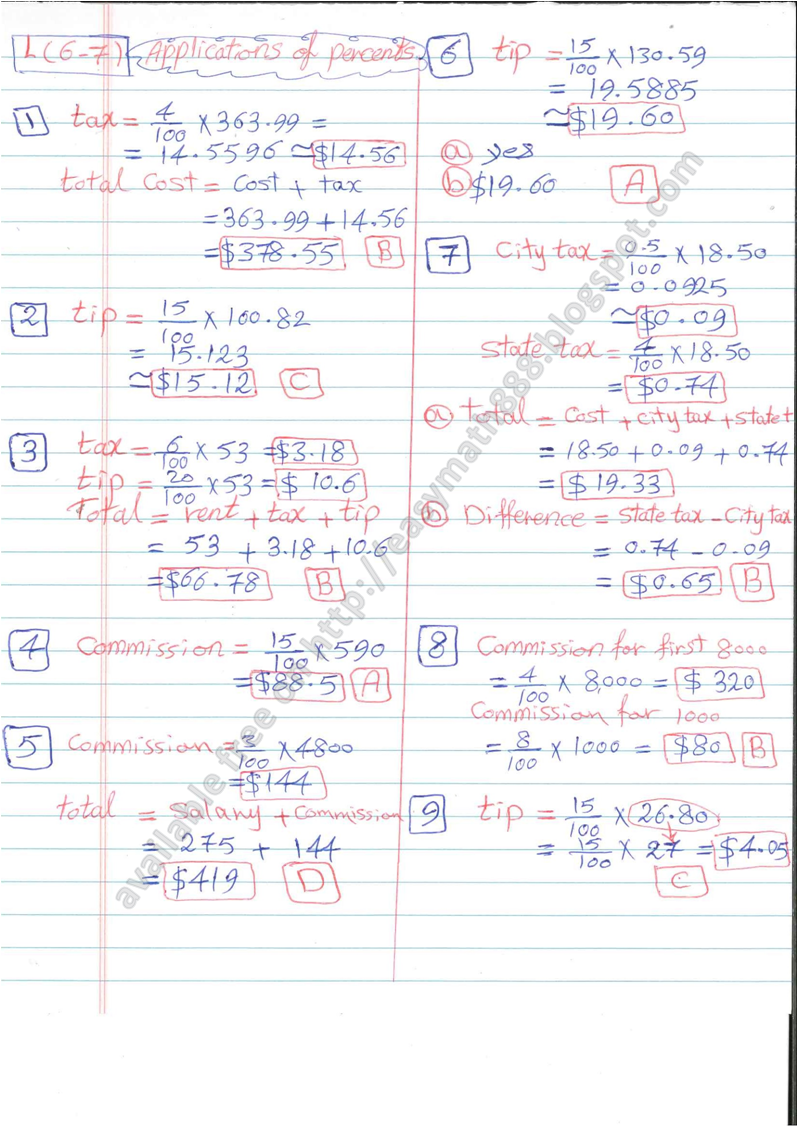 L(6-7) Applications of percents
1 tax = 4/100 × 363.99 =
= 14.5596 ≃ $14.56
total cost = cost + tax
= 363.99 + 14.56
= $378.55 B
2 tip = 15/100 × 100.82
= 15.123
≃ $15.12 C
3 tax = 6/100 × 53 = $3.18
tip = 20/100 × 53 = $10.6
Total = rent + tax + tip
= 53 + 3.18 + 10.6
= $66.78 B
4 Commission = 15/100 × 590
= $88.5 A
5 Commission = 3/100 × 4800
= $144
total = Salary + Commission
= 275 + 144
= $419 D
6 tip = 15/100 × 130.59
= 19.5885
≃ $19.60
a yes
b $19.60 A
7 City tax = 0.5/100 × 18.50
= 0.0925
≃ $0.09
State tax = 4/100 × 18.50
= $0.74
a Total = Cost + city tax + state t
= 18.50 + 0.09 + 0.74
= $19.33
b Difference = State tax - City tax
= 0.74 - 0.09
= $0.65 B
8 Commission for first 8000
= 4/100 × 8,000 = $320
Commission for 1000
= 8/100 × 1000 = $80 B
9 tip = 15/100 × 26.80
= 15/100 × 27 = $4.05
C
available free on http://easymath888.blogspot.com